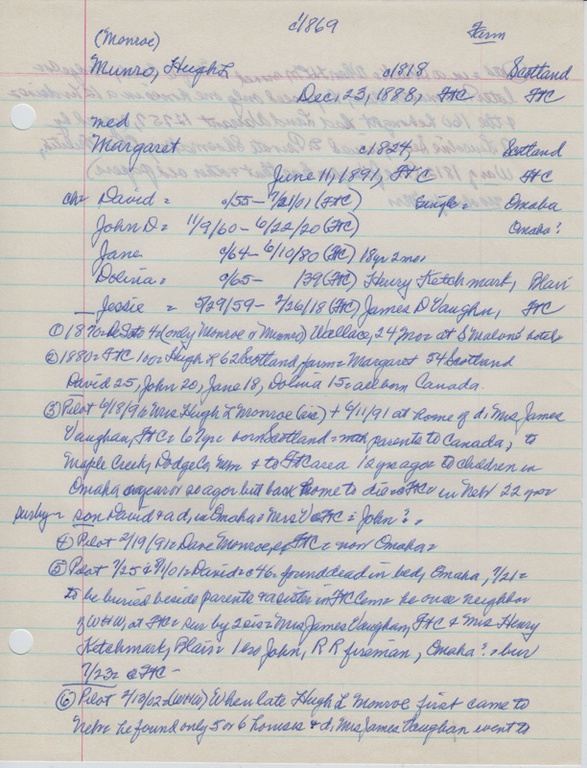 c/1869
Farm
(Monroe)
Munro, Hugh L c1818 Scotland
Dec, 23, 1888, FtC FtC
med
Margaret c1824, Scotland
June 11, 1891, FtC FtC
ch= David = c/55 - 7/21/01 (FtC) Single = Omaha
John D = 11/9/60 - 6/22/20 (FtC) Omaha?
Jane c/64 - 6/10/80 (FtC) 18yr 2mo=
Dolina = c/65 - /39 (FtC) Henry Ketchmark, Blair
Jessie = 5/29/59 - 2/26/18 (FtC) James D Vaughn, FtC
① 1870= (only Monroe or Munro) Wallace, 24 Mo= at S Malone hotel
② 1880= FtC 100= Hugh L 62 Scotland, farm= Margaret 54 Scotland
David 25, John 20, Jane 18, Dolina 15= all born Canada.
③ Pilot 6/18/91= Mrs Hugh L Monroe (sic) + 6/11/91 at home of d, Mrs James
Vaughan, FtC= 67yr= born Scotland= with parents to Canada, to
Maple Creek, Dodge Co, Nebr & to FtC area 12 yrs ago= to children in
Omaha a year or so ago but back home to die= FtC= in Nebr 22 yrs=
sur by= son David & a d, in Omaha= Mrs V FtC= John?=
④ Pilot 2/19/91= Dave Monroe, of FtC= now Omaha=
⑤ Pilot 7/25/01= David= c46= found dead in bed, Omaha, 7/21=
to be buried beside parents & sister in FtC Cem= he once neighbor
of W+W, at FtC= sur by 2 sis= Mrs James Vaughan, FtC & Mrs Henry
Ketchmark, Blair= 1 bro John, R R fireman, Omaha?= bur
7/23= @FtC -
⑥ Pilot 2/13/02= (W+W) When late Hugh L Monroe first came to
Nebr he found only 5 or 6 houses & d, Mrs James Vaughan went to